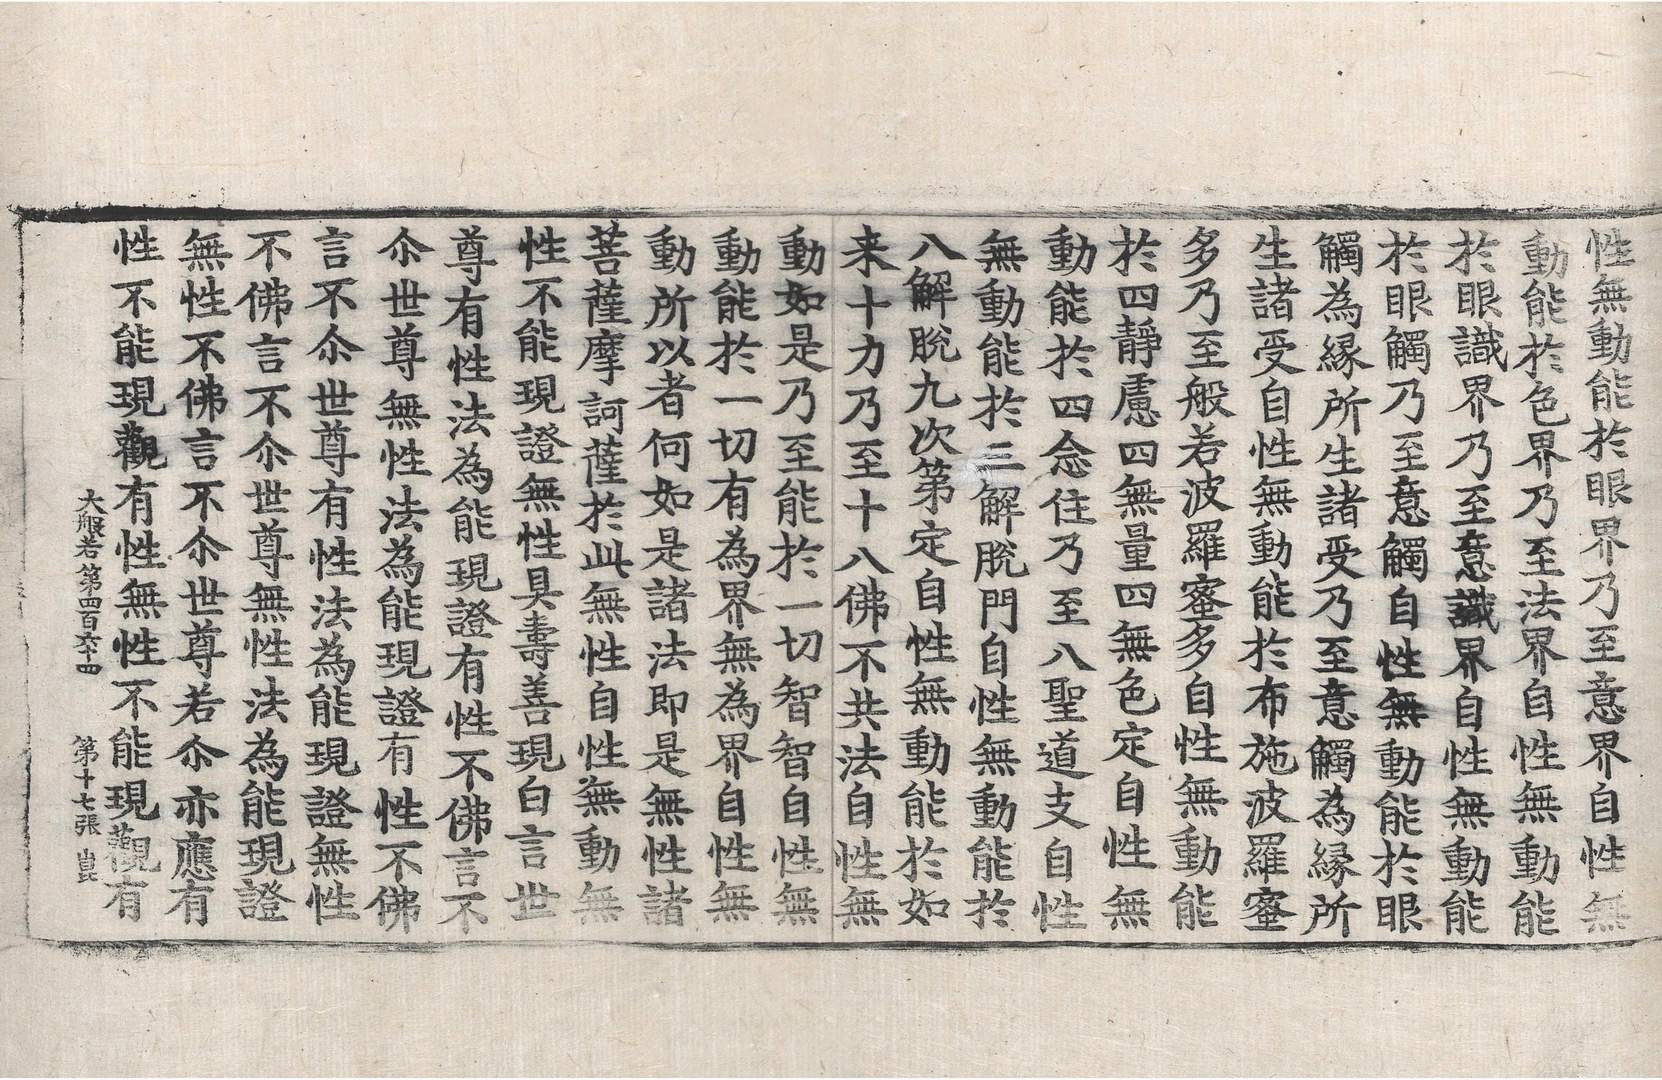 性無動能於眼界乃至意界自性無
動能於色界乃至法界自性無動能
於眼識界乃至意識界自性無動能
於眼觸乃至意觸自性無動能於眼
觸為緣所生諸受乃至意觸為緣所
生諸受自性無動能於布施波羅蜜
多乃至般若波羅蜜多自性無動能
於四靜慮四無量四無色定自性無
動能於四念住乃至八聖道支自性
無動能於三解脫門自性無動能於
八解脫九次第定自性無動能於如
来十力乃至十八佛不共法自性無
動如是乃至能於一切智智自性無
動能於一切有為界無為界自性無
動所以者何如是諸法即是無性諸
菩薩摩訶薩於此無性自性無動無
性不能現證無性具壽善現白言世
尊有性法為能現證有性不佛言不
尒世尊無性法為能現證有性不佛
言不尒世尊有性法為能現證無性
不佛言不尒世尊無性法為能現證
無性不佛言不尒世尊若尒亦應有
性不能現觀有性無性不能現觀有
大般若第四百六十四 第十七張 崑